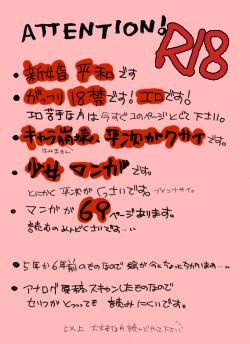 ATTENTION!
R18
• 新婚 平和です
• がっつり 18禁です!エロです!
エロ苦手な人は今すぐこのページをとじて下さい。
• キャラ崩壊、平次がクサイです。
すみません
• 少女マンガです。
とにかく平次がくさいです。
• マンガが69ページあります。
読むのめんどくさいです...
• 5年か6年前のものなので絵が今とちょっとちがいます...
• アナログ原稿スキャンしたものなので
セリフがとっっても読みにくいです。
以上 大丈夫な方 読んでやって下さい